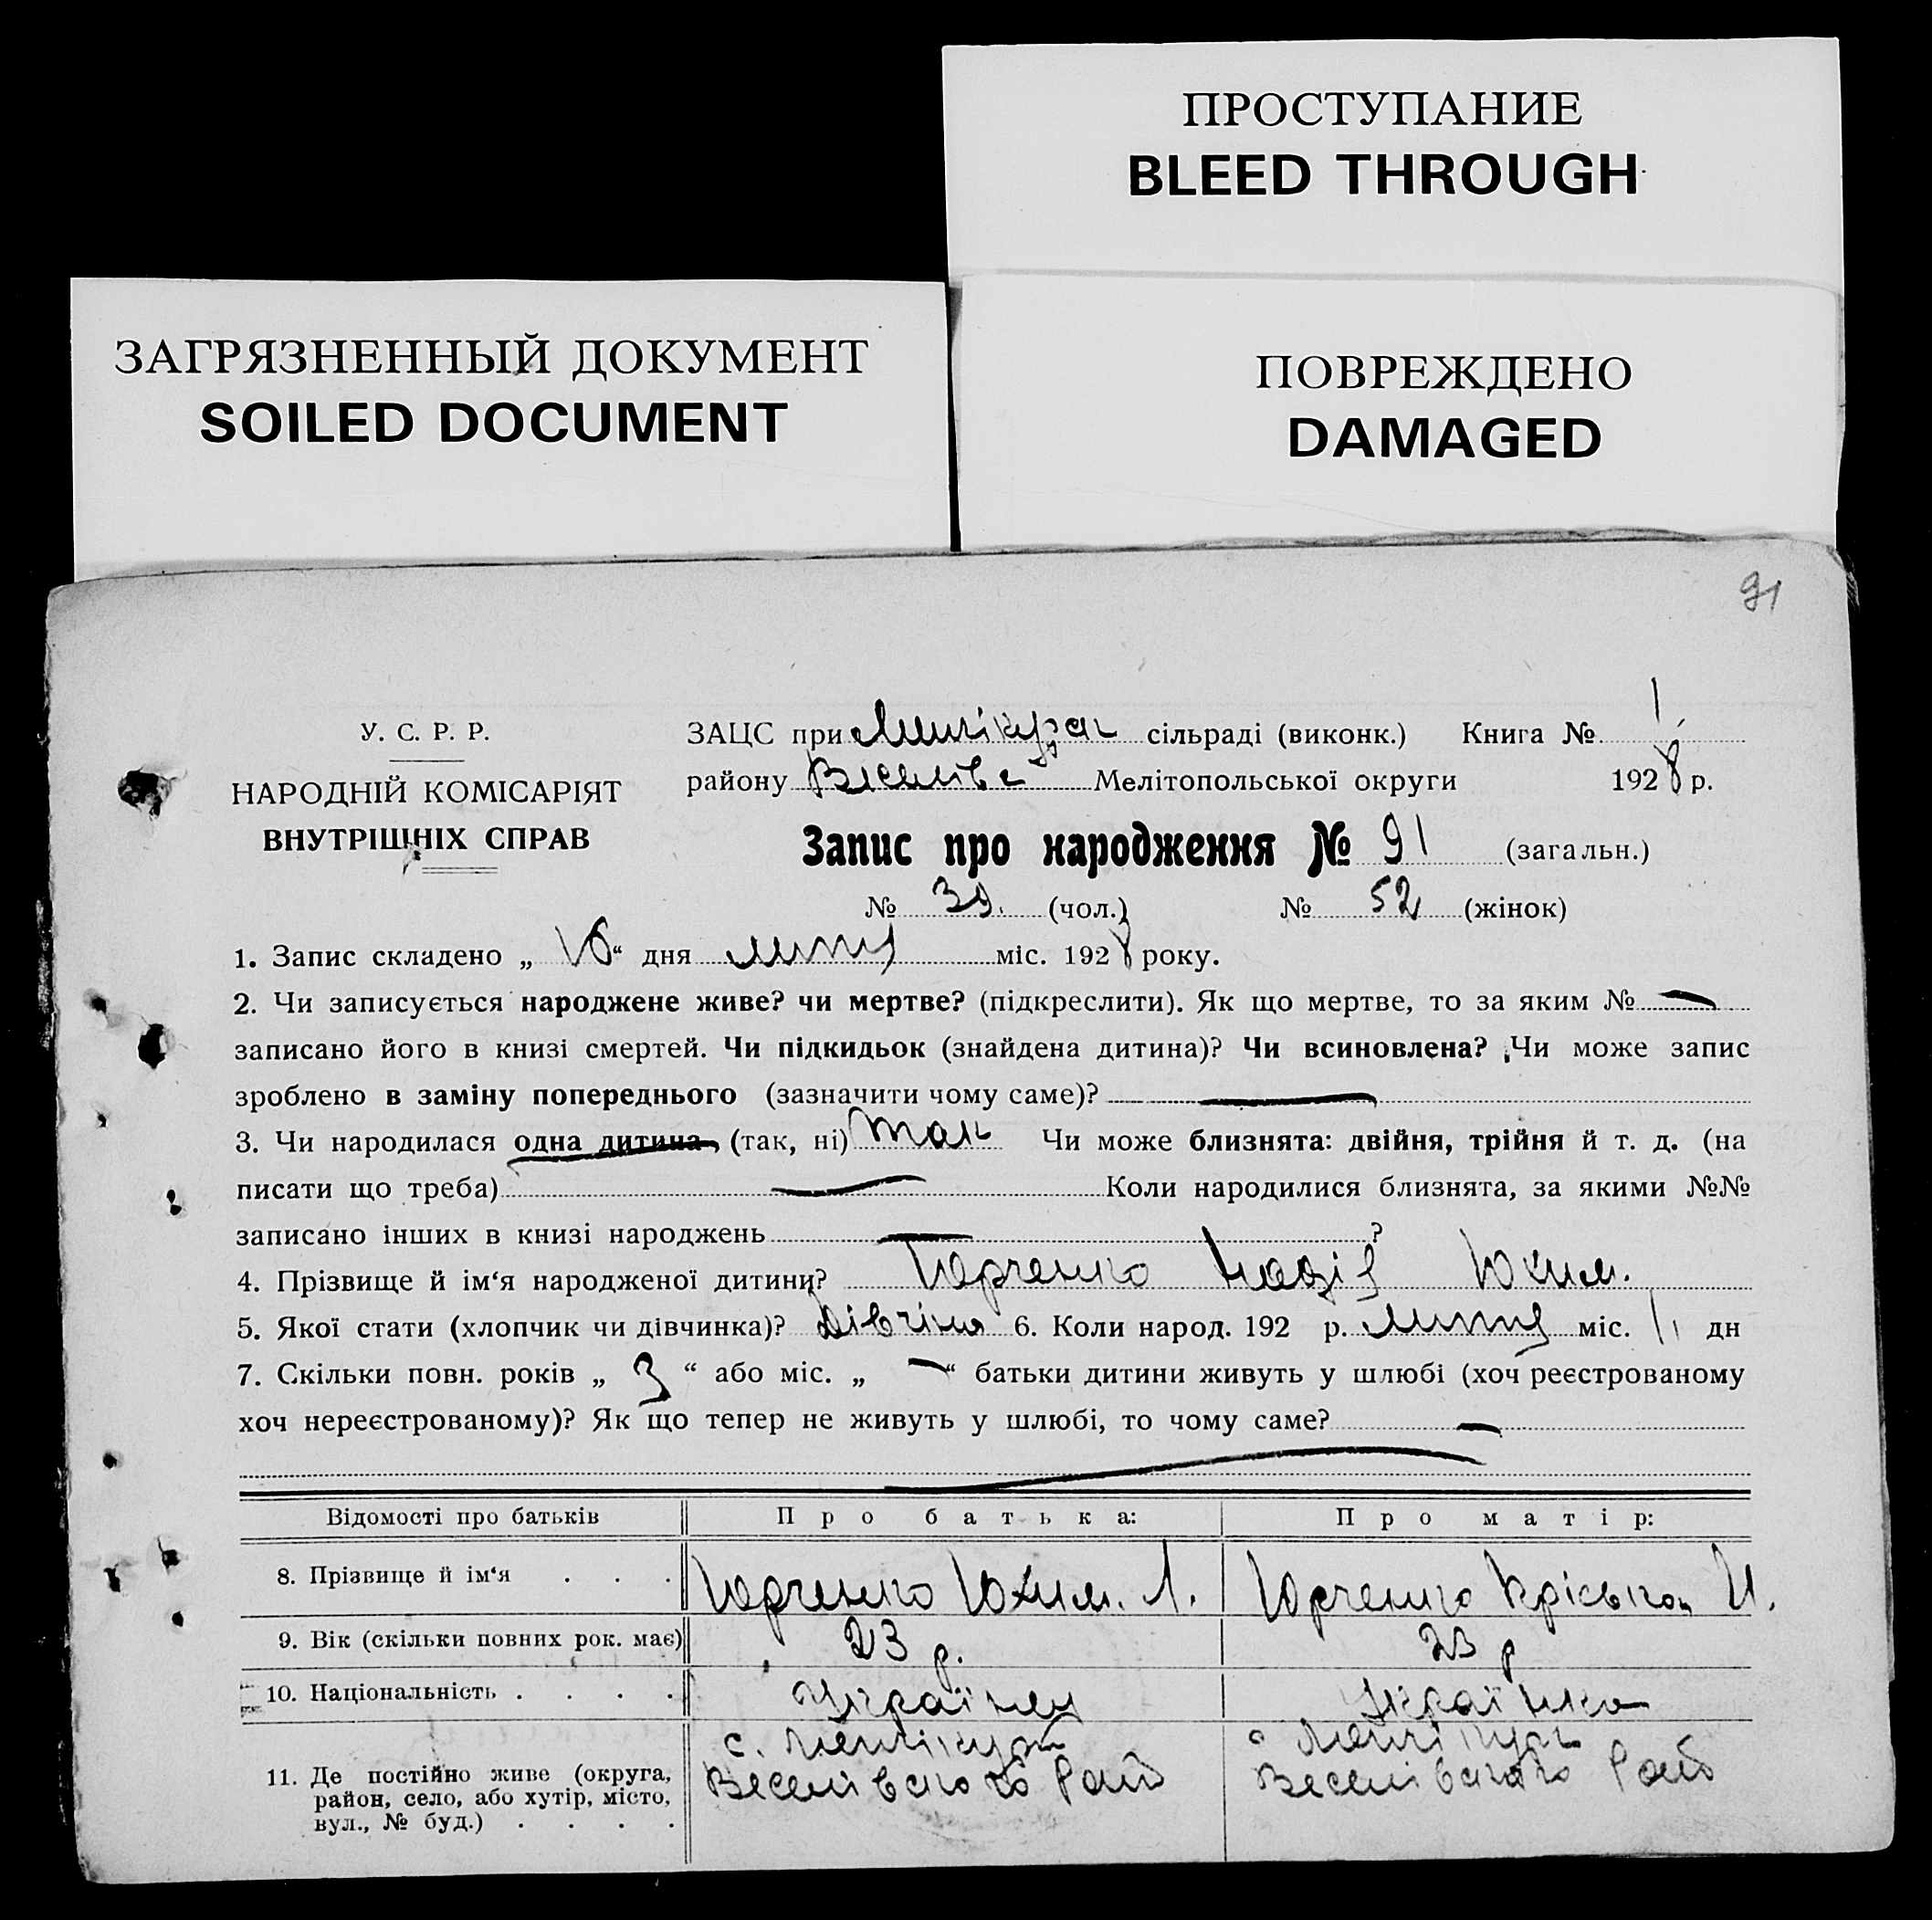 ПРОСТУПАНИЕ
BLEED THROUGH
ЗАГРЯЗНЕННЫЙ ДОКУМЕНТ
SOILED DOCUMENT
ПОВРЕЖДЕНО
DAMAGED
91
У. С. Р. Р.
НАРОДНІЙ КОМІСАРІЯТ
ВНУТРІШНІХ СПРАВ
ЗАЦС при сільраді (виконк.) Книга № 1
району Мелітопольської округи 1928 р.
Запис про народження № 91 (загальн.)
№ 39. (чол.) № 52 (жінок)
1. Запис складено „ 16 “ дня липня міс. 1928 року.
2. Чи записується народжене живе? чи мертве? (підкреслити). Як що мертве, то за яким № —
записано його в книзі смертей. Чи підкидьок (знайдена дитина)? Чи всиновлена? Чи може запис
зроблено в заміну попереднього (зазначити чому саме)? —
3. Чи народилася одна дитина (так, ні) так Чи може близнята: двійня, трійня й т. д. (на
писати що треба) — Коли народилися близнята, за якими №№
записано інших в книзі народжень — ?
4. Прізвище й ім‘я народженої дитини? Юрченко Надія Юхим.
5. Якої стати (хлопчик чи дівчинка)? Дівчіна 6. Коли народ. 192 р. липня міс. 11 дн
7. Скільки повн. років „ 3 “ або міс. „ — “ батьки дитини живуть у шлюбі (хоч реєстрованому
хоч нереєстрованому)? Як що тепер не живуть у шлюбі, то чому саме? —
Відомості про батьків Про батька: Про матір:
8. Прізвище й ім‘я . . . Юрченко Юхим. Л. Юрченко И.
9. Вік (скільки повних рок. має) 23 р. 23 р
10. Національність . . . . Українец Українка
11. Де постійно живе (округа,
район, село, або хутір, місто,
вул., № буд.) . . . .
с.
Веселівского Рай Веселівского Рай